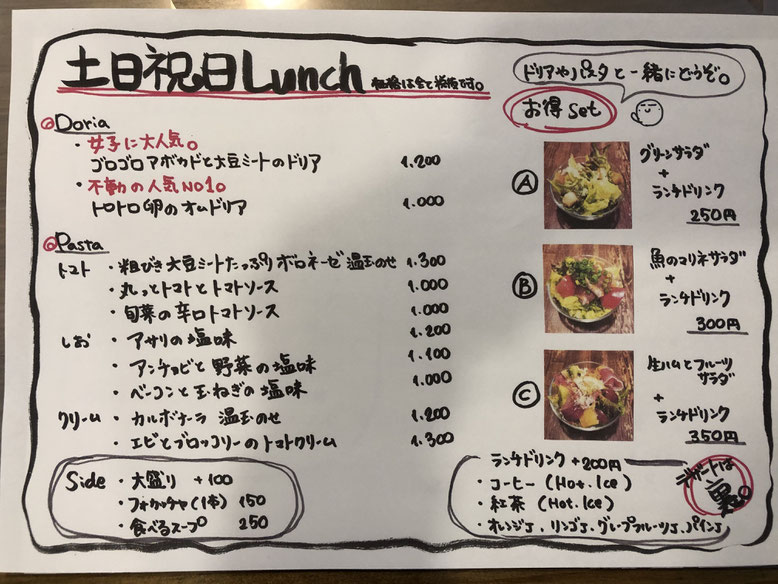 土日祝日Lunch 価格は全て税抜です。
ドリアやパスタと一緒にどうぞ。
お得set
Doria
・女子に大人気。
ゴロゴロアボカドと大豆ミートのドリア 1.200
・不動の人気NO1。
トロトロ卵のオムドリア 1.000
Pasta
トマト ・粗びき大豆ミートたっぷりボロネーゼ 温玉のせ 1.300
・丸っとトマトとトマトソース 1.000
・旬菜の辛口トマトソース 1.000
しお ・アサリの塩味 1.200
・アンチョビと野菜の塩味 1.100
・ベーコンと玉ねぎの塩味 1.000
クリーム ・カルボナーラ 温玉のせ 1.200
・エビとブロッコリーのトマトクリーム 1.300
Side ・大盛り +100
・フォカッチャ(1本) 150
・食べるスープ 250
A
グリーンサラダ
+
ランチドリンク
250円
B
魚のマリネサラダ
+
ランチドリンク
300円
C
生ハムとフルーツ
サラダ
+
ランチドリンク
350円
ランチドリンク +200円
・コーヒー (Hot. Ice)
・紅茶 (Hot. Ice)
・オレンジJ.リンゴJ.グレープフルーツJ.パインJ
デザートは